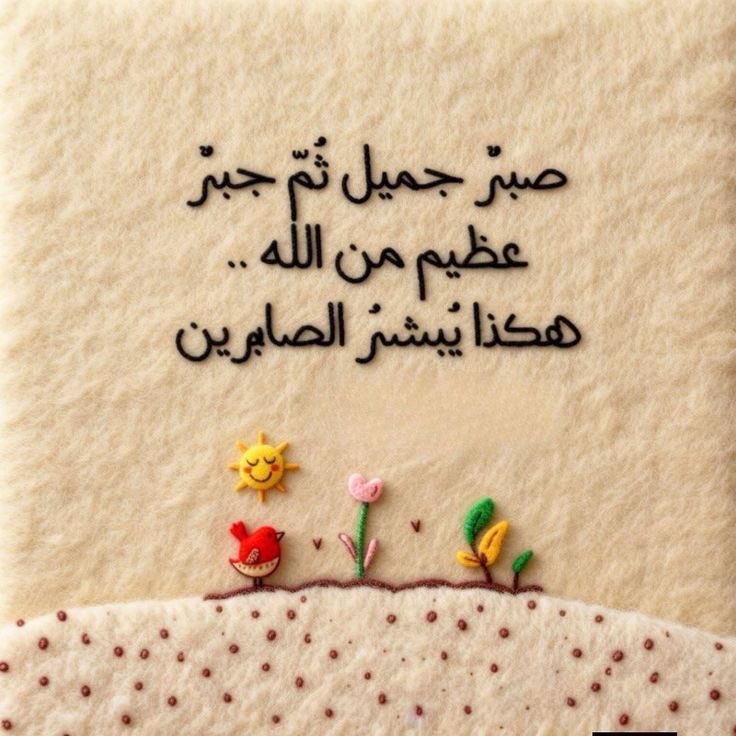 صبرٌ جميل ثُمّ جبرٌ
عظيم من الله ..
هكذا يُبشرُ الصابرين